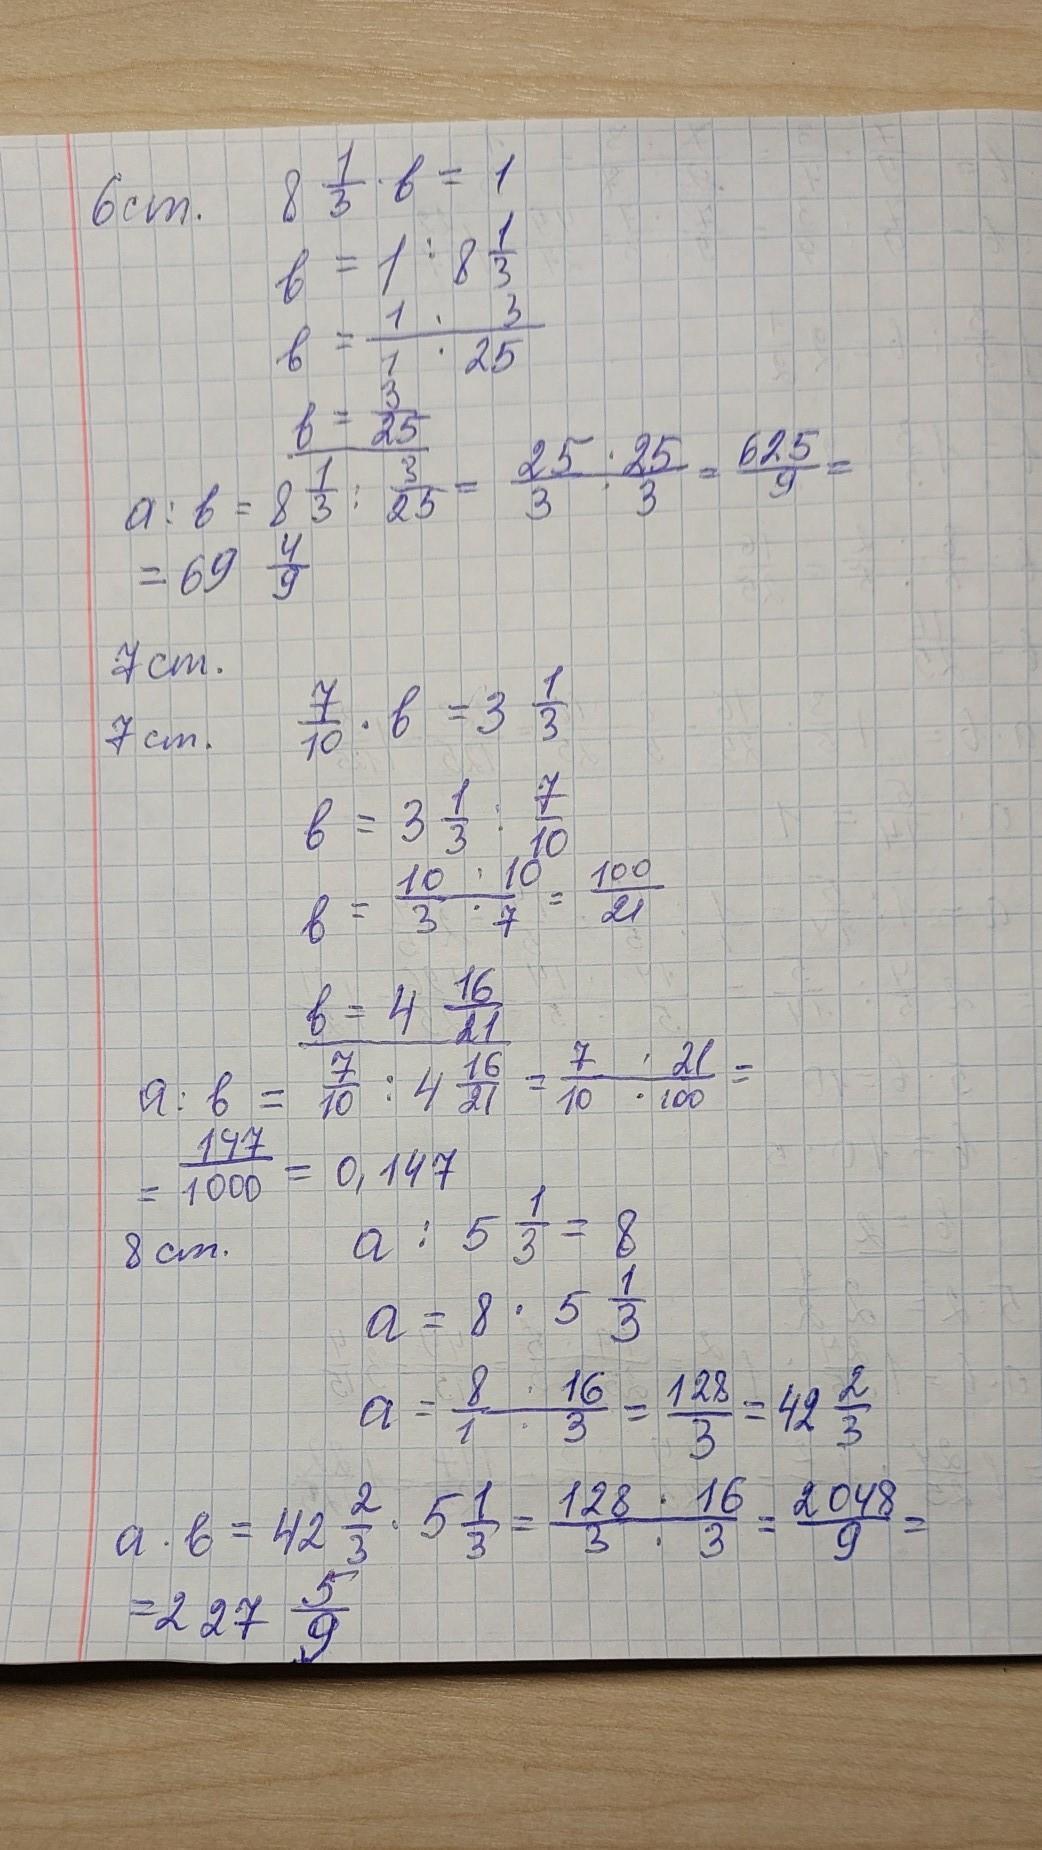 6 ст. 8 1/3 · в = 1
в = 1 : 8 1/3
в = 1 · 3 / 1 · 25
в = 3/25
а : в = 8 1/3 : 3/25 = 25 · 25 / 3 · 3 = 625/9 =
= 69 4/9
7 ст.
7 ст. 7/10 · в = 3 1/3
в = 3 1/3 : 7/10
в = 10 · 10 / 3 · 7 = 100/21
в = 4 16/21
а : в = 7/10 : 4 16/21 = 7 · 21 / 10 · 100 =
= 147/1000 = 0,147
8 ст. а : 5 1/3 = 8
а = 8 · 5 1/3
а = 8 · 16 / 1 · 3 = 128/3 = 42 2/3
а · в = 42 2/3 · 5 1/3 = 128 · 16 / 3 · 3 = 2048/9 =
= 227 5/9